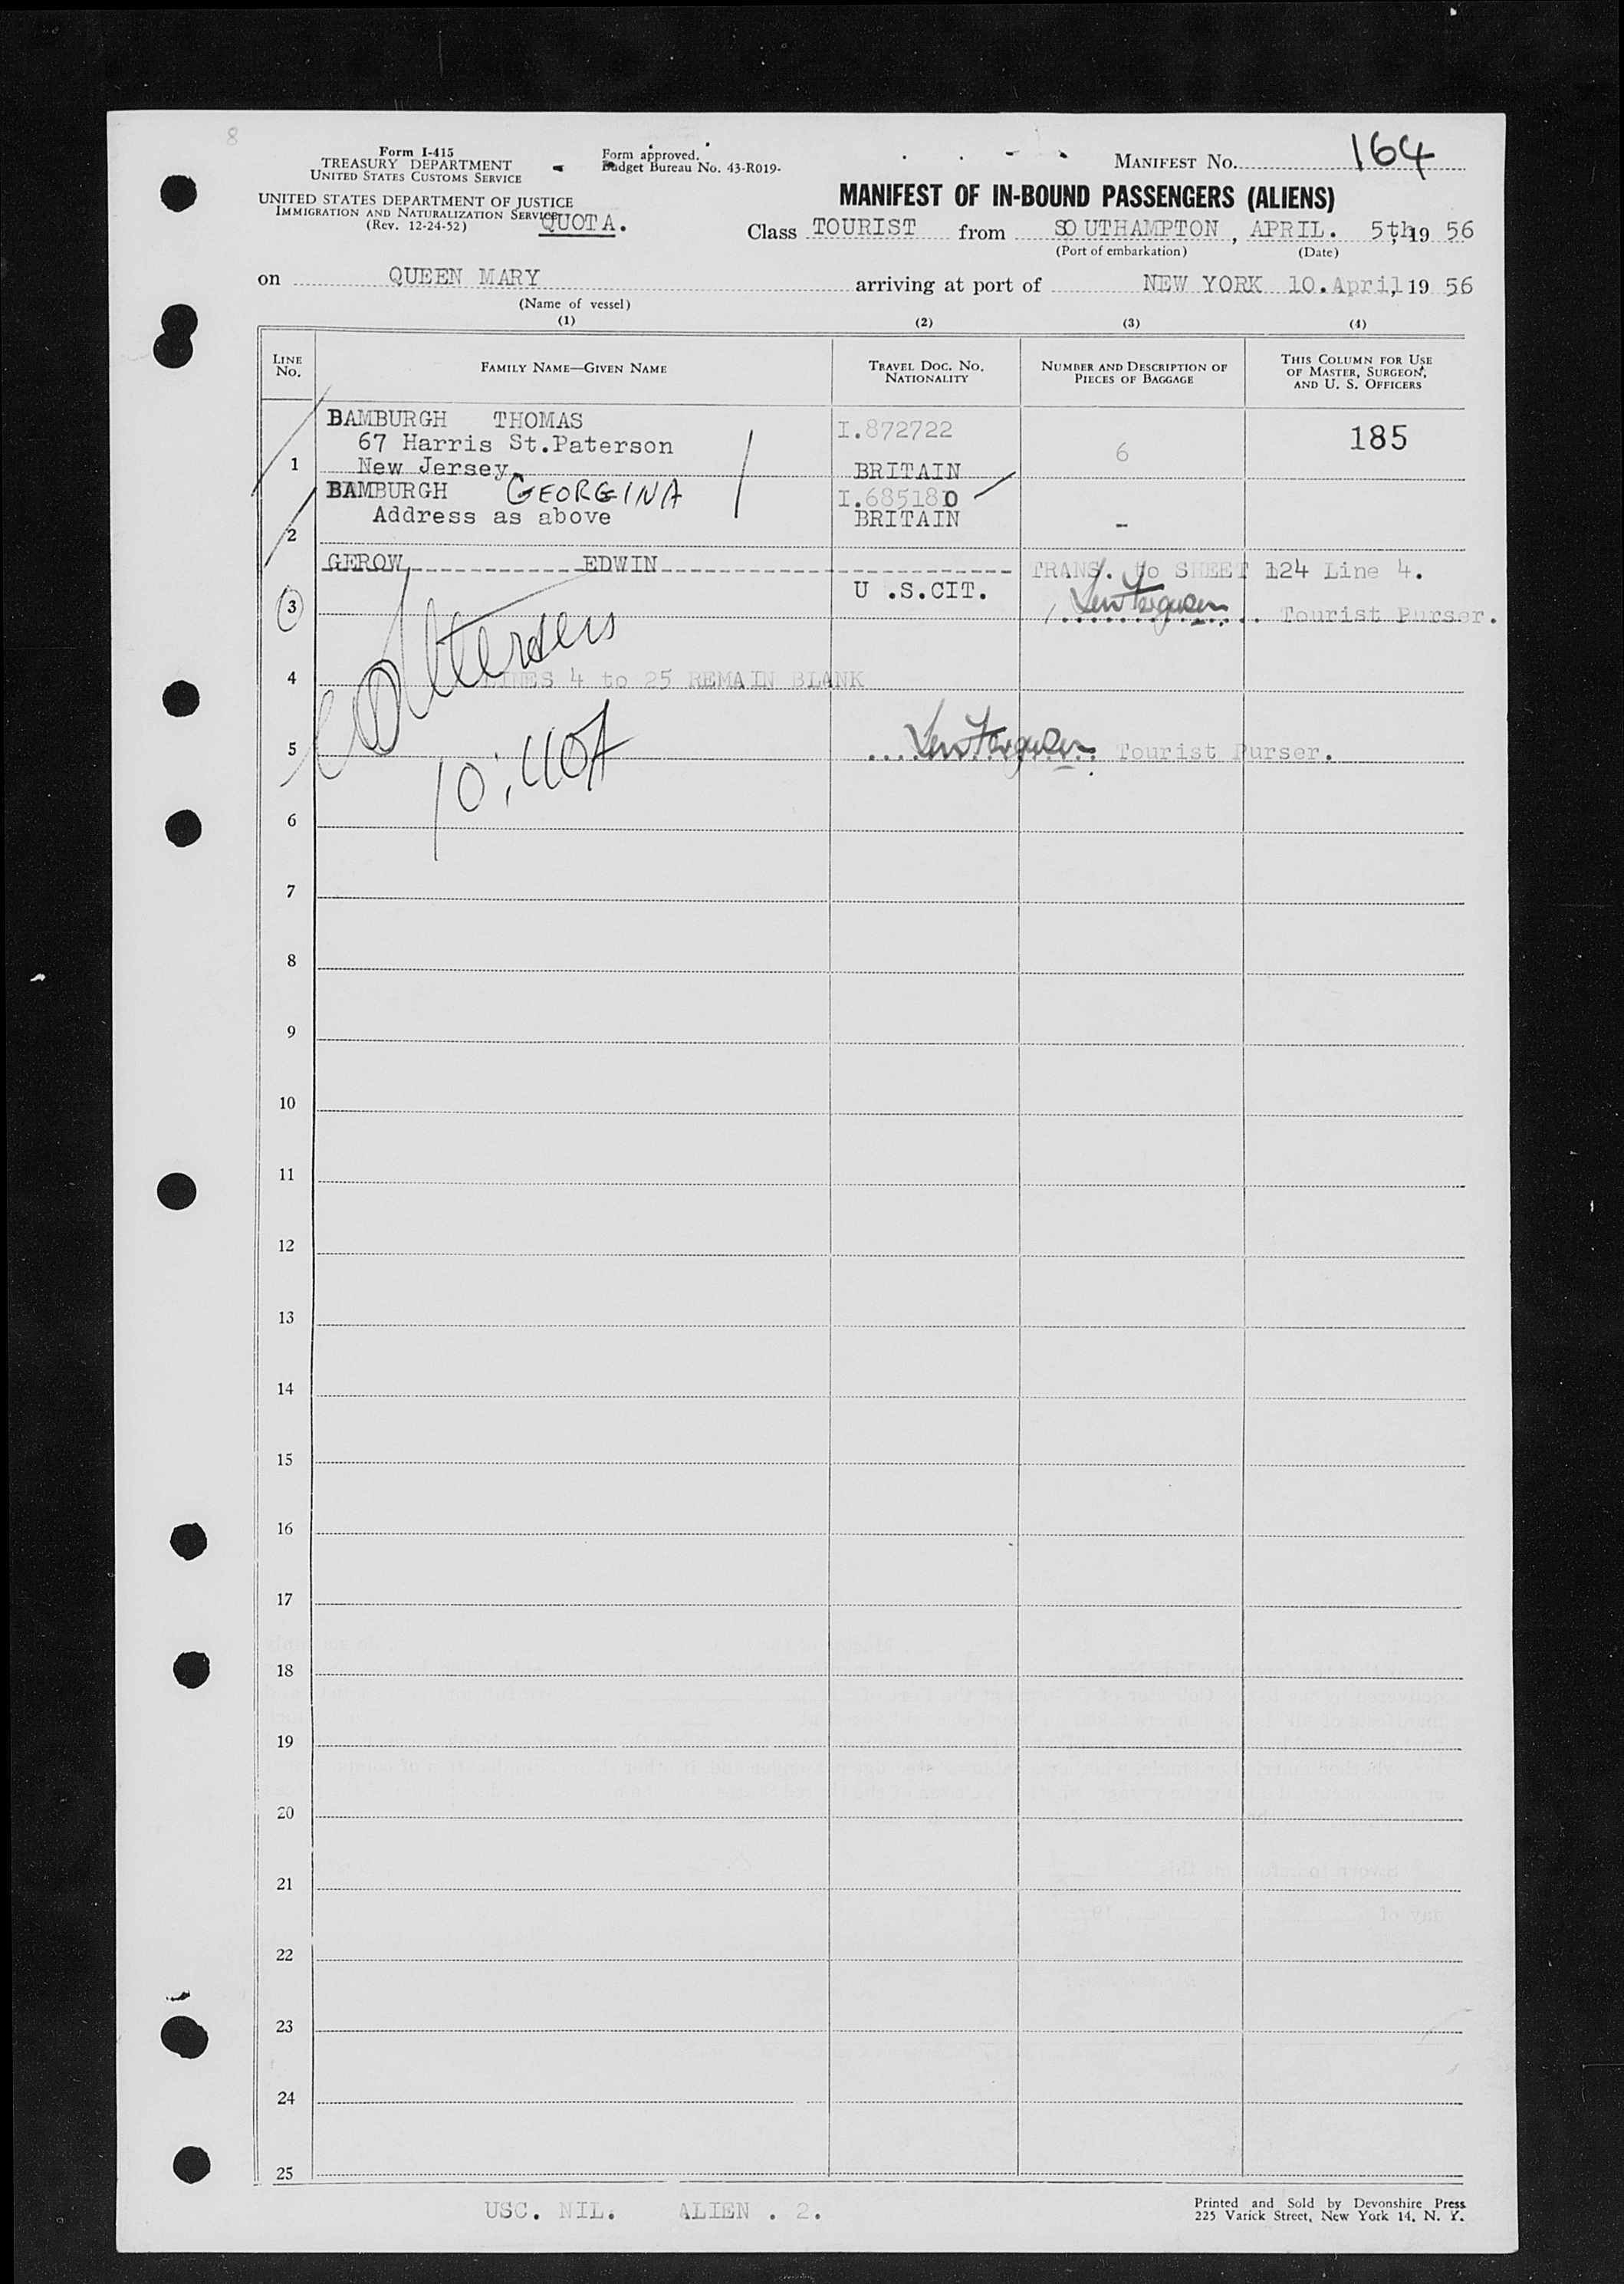 8
Form I-415
TREASURY DEPARTMENT
UNITED STATES CUSTOMS SERVICE
Form approved.
Budget Bureau No. 43-R019-
MANIFEST No. 164
UNITED STATES DEPARTMENT OF JUSTICE
IMMIGRATION AND NATURALIZATION SERVICE
(Rev. 12-24-52)
QUOTA.
MANIFEST OF IN-BOUND PASSENGERS (ALIENS)
Class TOURIST from SOUTHAMPTON, APRIL. 5th, 19 56
(Port of embarkation) (Date)
on QUEEN MARY arriving at port of NEW YORK 10.April, 19 56
(Name of vessel)
(1) (2) (3) (4)
LINE No.
FAMILY NAME—GIVEN NAME
TRAVEL DOC. NO. NATIONALITY
NUMBER AND DESCRIPTION OF PIECES OF BAGGAGE
THIS COLUMN FOR USE OF MASTER, SURGEON, AND U. S. OFFICERS
BAMBURGH THOMAS I.872722 185
67 Harris St.Paterson 6
1 New Jersey. BRITAIN
BAMBURGH GEORGINA I.685180
Address as above BRITAIN -
2
GEROW, EDWIN TRANS. to SHEET 124 Line 4.
U .S.CIT.
3 Len Ferguson Tourist Purser.
4 LINES 4 to 25 REMAIN BLANK
5 Len Ferguson Tourist Purser.
6
7
8
9
10
11
12
13
14
15
16
17
18
19
20
21
22
23
24
25
USC. NIL. ALIEN . 2.
Printed and Sold by Devonshire Press
225 Varick Street, New York 14, N. Y.